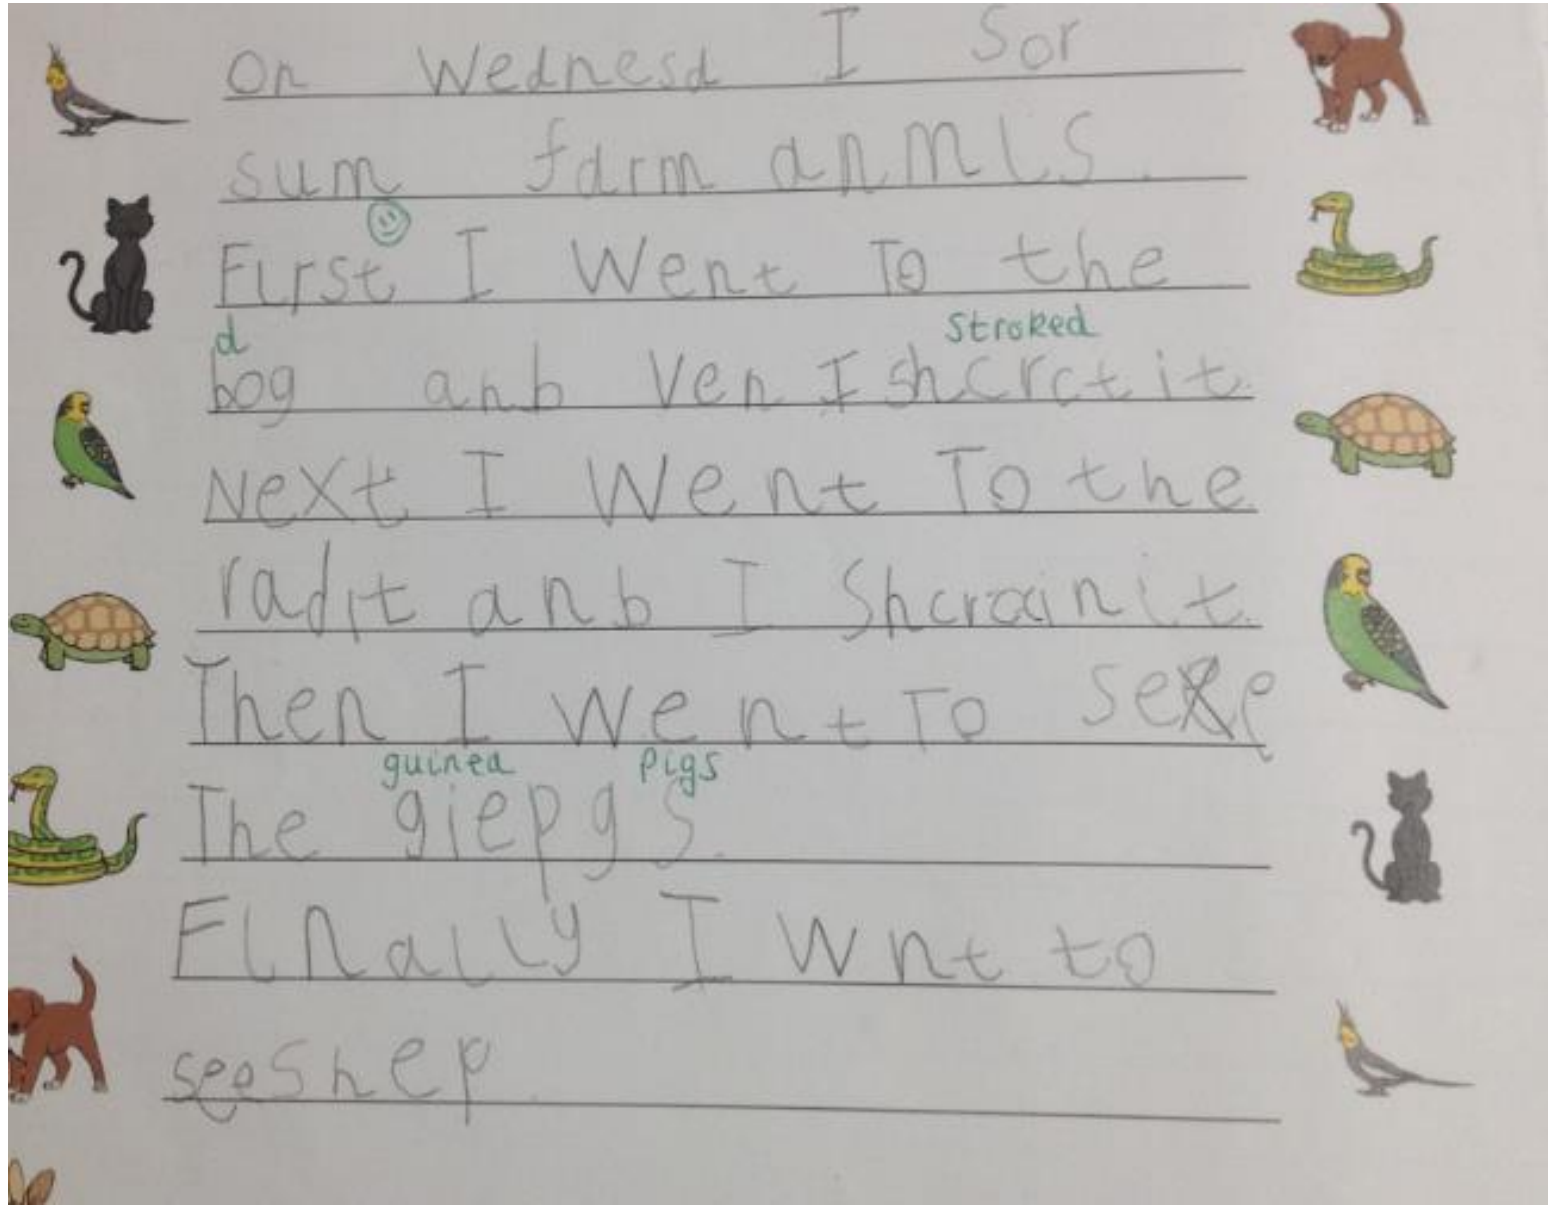 On Wednesd I Sor
sum farm anmls.
First I went To the
d stroked
bog anb Ven I shcrct it.
Next I went To the
radit anb I Shcrain it.
Then I went To see
guinea pigs
The giepgs.
Finally I wnt to
see shep.